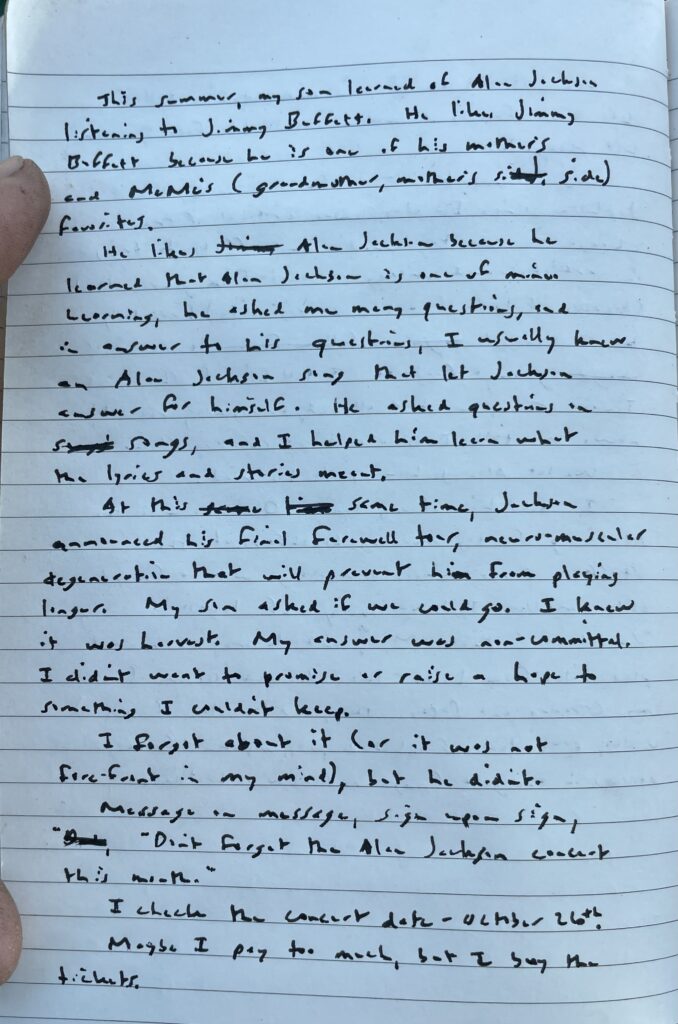 This summer, my son learned of Alan Jackson
listening to Jimmy Buffett. He likes Jimmy
Buffett because he is one of his mother's
and MeMe's (grandmother, mother's side, side)
favorites.
He likes Alan Jackson because he
learned that Alan Jackson is one of mine.
Learning, he asked me many questions, and
in answer to his questions, I usually knew
an Alan Jackson song that let Jackson
answer for himself. He asked questions on
songs, and I helped him learn what
the lyrics and stories meant.
At this same time, Jackson
announced his final farewell tour, neuro-muscular
degeneration that will prevent him from playing
longer. My son asked if we could go. I knew
it was harvest. My answer was non-committal.
I didn't want to promise or raise a hope to
something I couldn't keep.
I forgot about it (or it was not
fore-front in my mind), but he didn't.
Message on message, sign upon sign,
"Don't forget the Alan Jackson concert
this month."
I check the concert date - October 26th.
Maybe I pay too much, but I buy the
tickets.